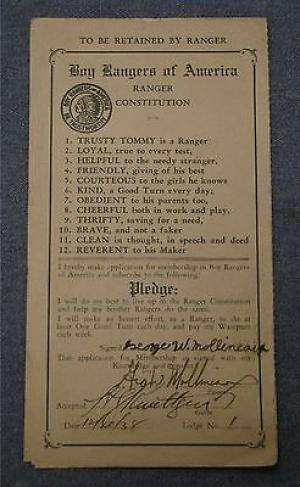 TO BE RETAINED BY RANGER
Boy Rangers of America
RANGER
CONSTITUTION
BOY RANGERS OF AMERICA
BE TRUSTWORTHY
1. TRUSTY TOMMY is a Ranger
2. LOYAL, true to every test,
3. HELPFUL to the needy stranger,
4. FRIENDLY, giving of his best
5. COURTEOUS to the girls he knows
6. KIND, a Good Turn every day;
7. OBEDIENT to his parents too,
8. CHEERFUL both in work and play,
9. THRIFTY, saving for a need,
10. BRAVE, and not a faker
11. CLEAN in thought, in speech and deed
12. REVERENT to his Maker
I hereby make application for membership in Boy Rangers
of America and subscribe to the following:
Pledge:
I will do my best to live up to the Ranger Constitution
and help my brother Rangers do the same.
I will make an honest effort, as a Ranger, to do at
least One Good Turn each day, and pay my Wampum
each week.
Signed George W. Mollineaux
This application for Membership is signed with my
Knowledge and consent
Mollineaux
Accepted
Guide
Date 12/20/38 Lodge No. 1